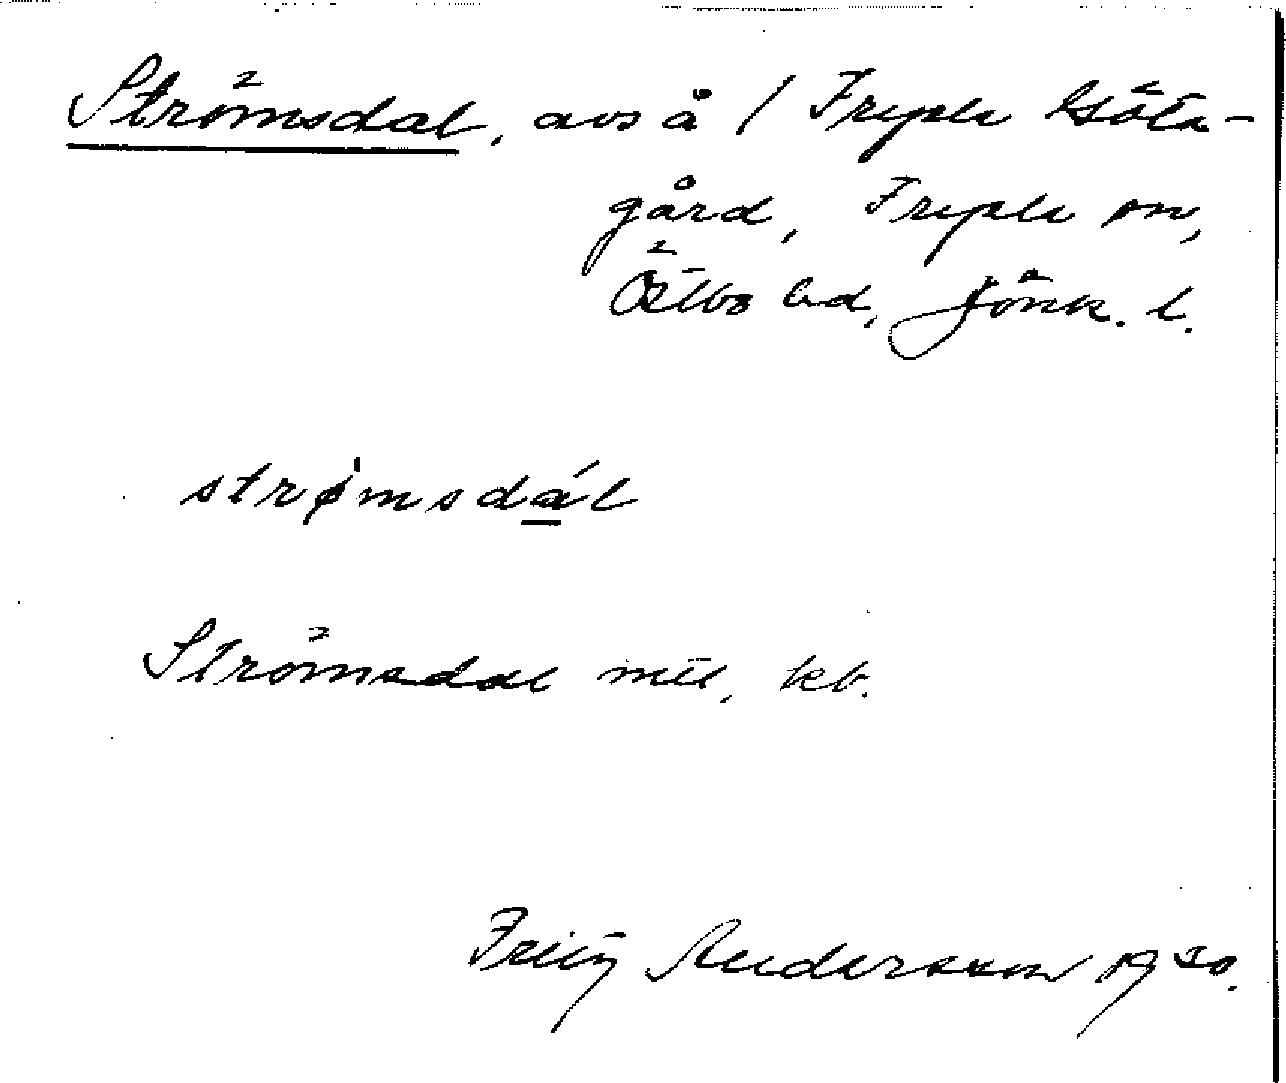 Strömsdal, avs å / Fryele Göta-
gård, Fryele sn,
Östbo hd, Jönk. l.
strømsdál
Strömsdal mtl, kb.
Fritz Andersson 1930.